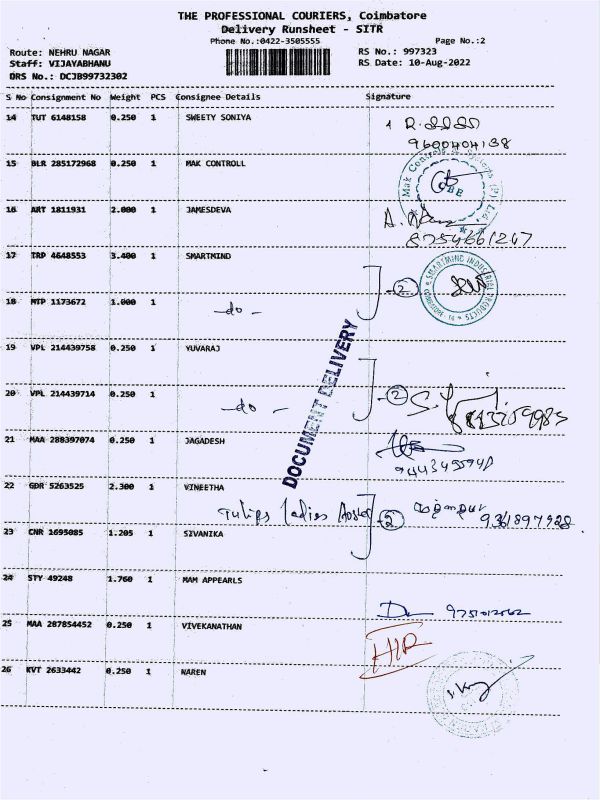 THE PROFESSIONAL COURIERS, Coimbatore
Delivery Runsheet - SITR
Phone No.:0422-3505555
Page No.:2
Route: NEHRU NAGAR
RS No.: 997323
Staff: VIJAYABHANU
RS Date: 10-Aug-2022
DRS No.: DCJB99732302
S No Consignment No Weight PCS Consignee Details Signature
14 TUT 6148158 0.250 1 SWEETY SONIYA
9600404138
15 BLR 285172968 0.250 1 MAK CONTROLL
16 ART 1811931 2.000 1 JAMESDEVA
8754661247
17 TRP 4648553 3.400 1 SMARTMIND
2
SMARTMIND INDUSTRIAL PRODUCTS
18 MTP 1173672 1.000 1 -do-
19 VPL 214439758 0.250 1 YUVARAJ
DOCUMENT DELIVERY
20 VPL 214439714 0.250 1 -do- 2
21 MAA 288397074 0.250 1 JAGADESH
22 GDR 5263525 2.300 1 VINEETHA
Tulips Ladies Hostel 2 9361897928
23 CNR 1695085 1.205 1 SIVANIKA
24 STY 49248 1.760 1 MAM APPEARLS
25 MAA 287854452 0.250 1 VIVEKANATHAN
26 KVT 2633442 0.250 1 NAREN